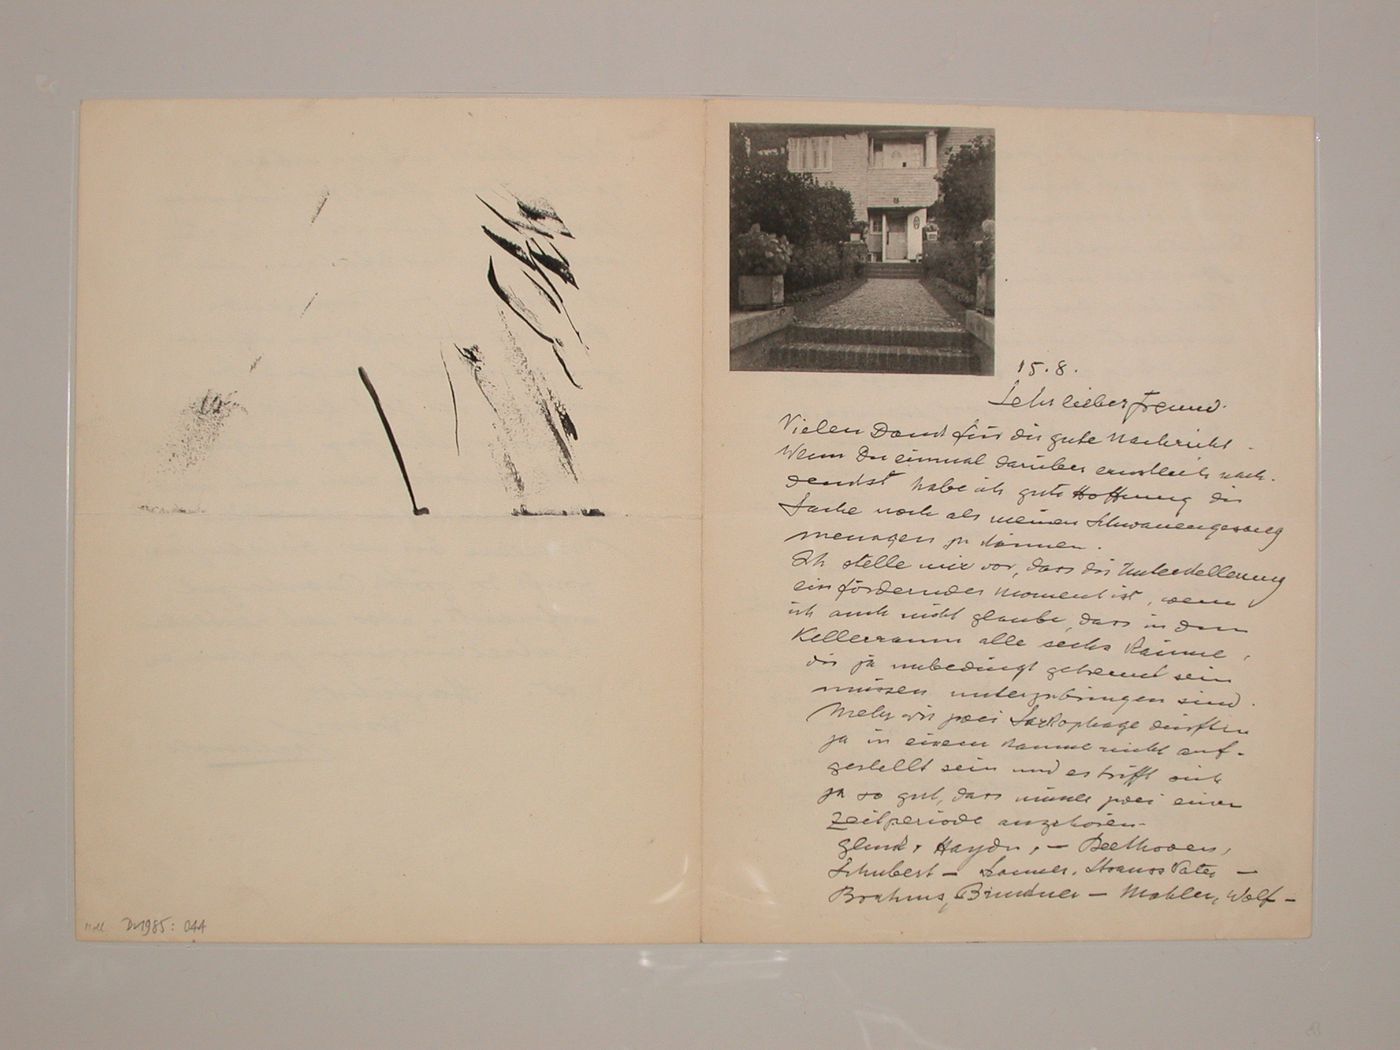 15.8.
Sehr lieber Freund.
Vielen Dank für die gute Nachricht.
Wenn Du einmal darüber ernstlich nach-
denkst habe ich gute Hoffnung die
Sache noch als meinen Schwanengesang
menagen zu können.
Ich stelle mir vor, dass die Unterkellerung
ein förderndes Moment ist, wenn
ich auch nicht glaube, dass in dem
Kellerraum alle sechs Räume,
die ja unbedingt getrennt sein
müssen unterzubringen sind.
Mehr wie zwei Sarkophage dürften
ja in einem Raume nicht auf-
gestellt sein und es trifft sich
ja so gut, dass immer zwei einer
Zeitperiode angehören.
Gluck, Haydn, – Beethoven,
Schubert – Lanner, Strauss Vater –
Brahms, Bruckner – Mahler, Wolf –
Moll Dv1985: 044